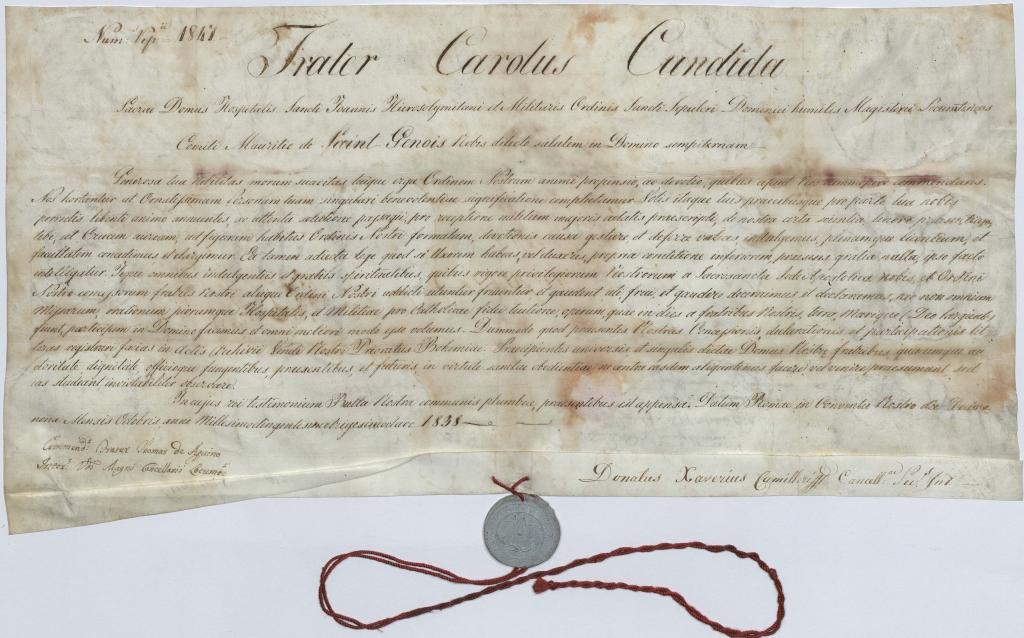 Num: Rep.
Frater Carolus Candida
Sacrae Domus Hospitalis Sancti Joannis Hierosolymitani et Militaris Ordinis Sancti Sepulcri Dominici humilis Magisterii Locumtenens
Comiti Mauritio de Saint Genois Nobis dilecto salutem in Domino sempiternam
Generosa tua Nobilitas morum suavitas tuique erga Ordinem Nostrum animi propensio, ac devotio, quibus apud Nos
Nos hortantur ut Personam tuam singulari benevolentiae significatione Solis itaque tuis precibusque pro parte tua nobis
porrectis libente animo annuentes, ac pro receptione militum majoris aetatis praescripto, de nostra certa scientia tenore praesentium
tibi, ut Crucem auream, ad figuram habitus Ordinis Nostri formatam, devotionis causa gestare et deferre valeas, indulgemus, plenamque licentiam, et
facultatem concedimus et elargimur. Ea tamen adjecta lege quod si Uxorem habeas, vel duxeris, propria conditione inferiorem praesens gratia nulla, ipso facto
intelligatur. Utque omnibus indulgentiis et gratiis spiritualibus, quibus vigore privilegiorum Nostrorum a Sacrosancta Sede Apostolica nobis, et Ordini
Nostro concessorum fratres Nostri alique Ordini Nostri addicti utuntur fruuntur et gaudent uti, frui, et gaudere decernimus et declaramus, nec non omnium
Missarum, orationum piorumque Hospitalis, et Militiae pro Catholicae fidei tuitione, operum, quae in dies a fratribus Nostris, terra, Marique (Deo largiente)
fiunt, participem in Domino facimus et omni meliori modo esse volumus. Dummodo quod praesentes Nostras Concessionis, declarationis et participationis lit
teras registrari facias in Actis Archivii Nostri Prioratus Bohemiae. Praecipientes universis et singulis dictae Domus Nostrae fratribus quacumque au
ctoritate dignitate officioque fungentibus, praesentibus, et futuris, in virtute sanctae obedientiae ne contra easdem aliquatenus facere vel venire praesumant sed
eas studeant inviolabiliter observare.
In cujus rei testimonium Bulla Nostra communis plumbea, praesentibus est appensa. Datum Romae in Conventu Nostro die
nona Mensis Octobris anno Millesimo octingentesimo trigesimo octavo 1838
Commend. Thomas de Aquino
Magni Cancellarii
Donatus Xaverius Cancell.